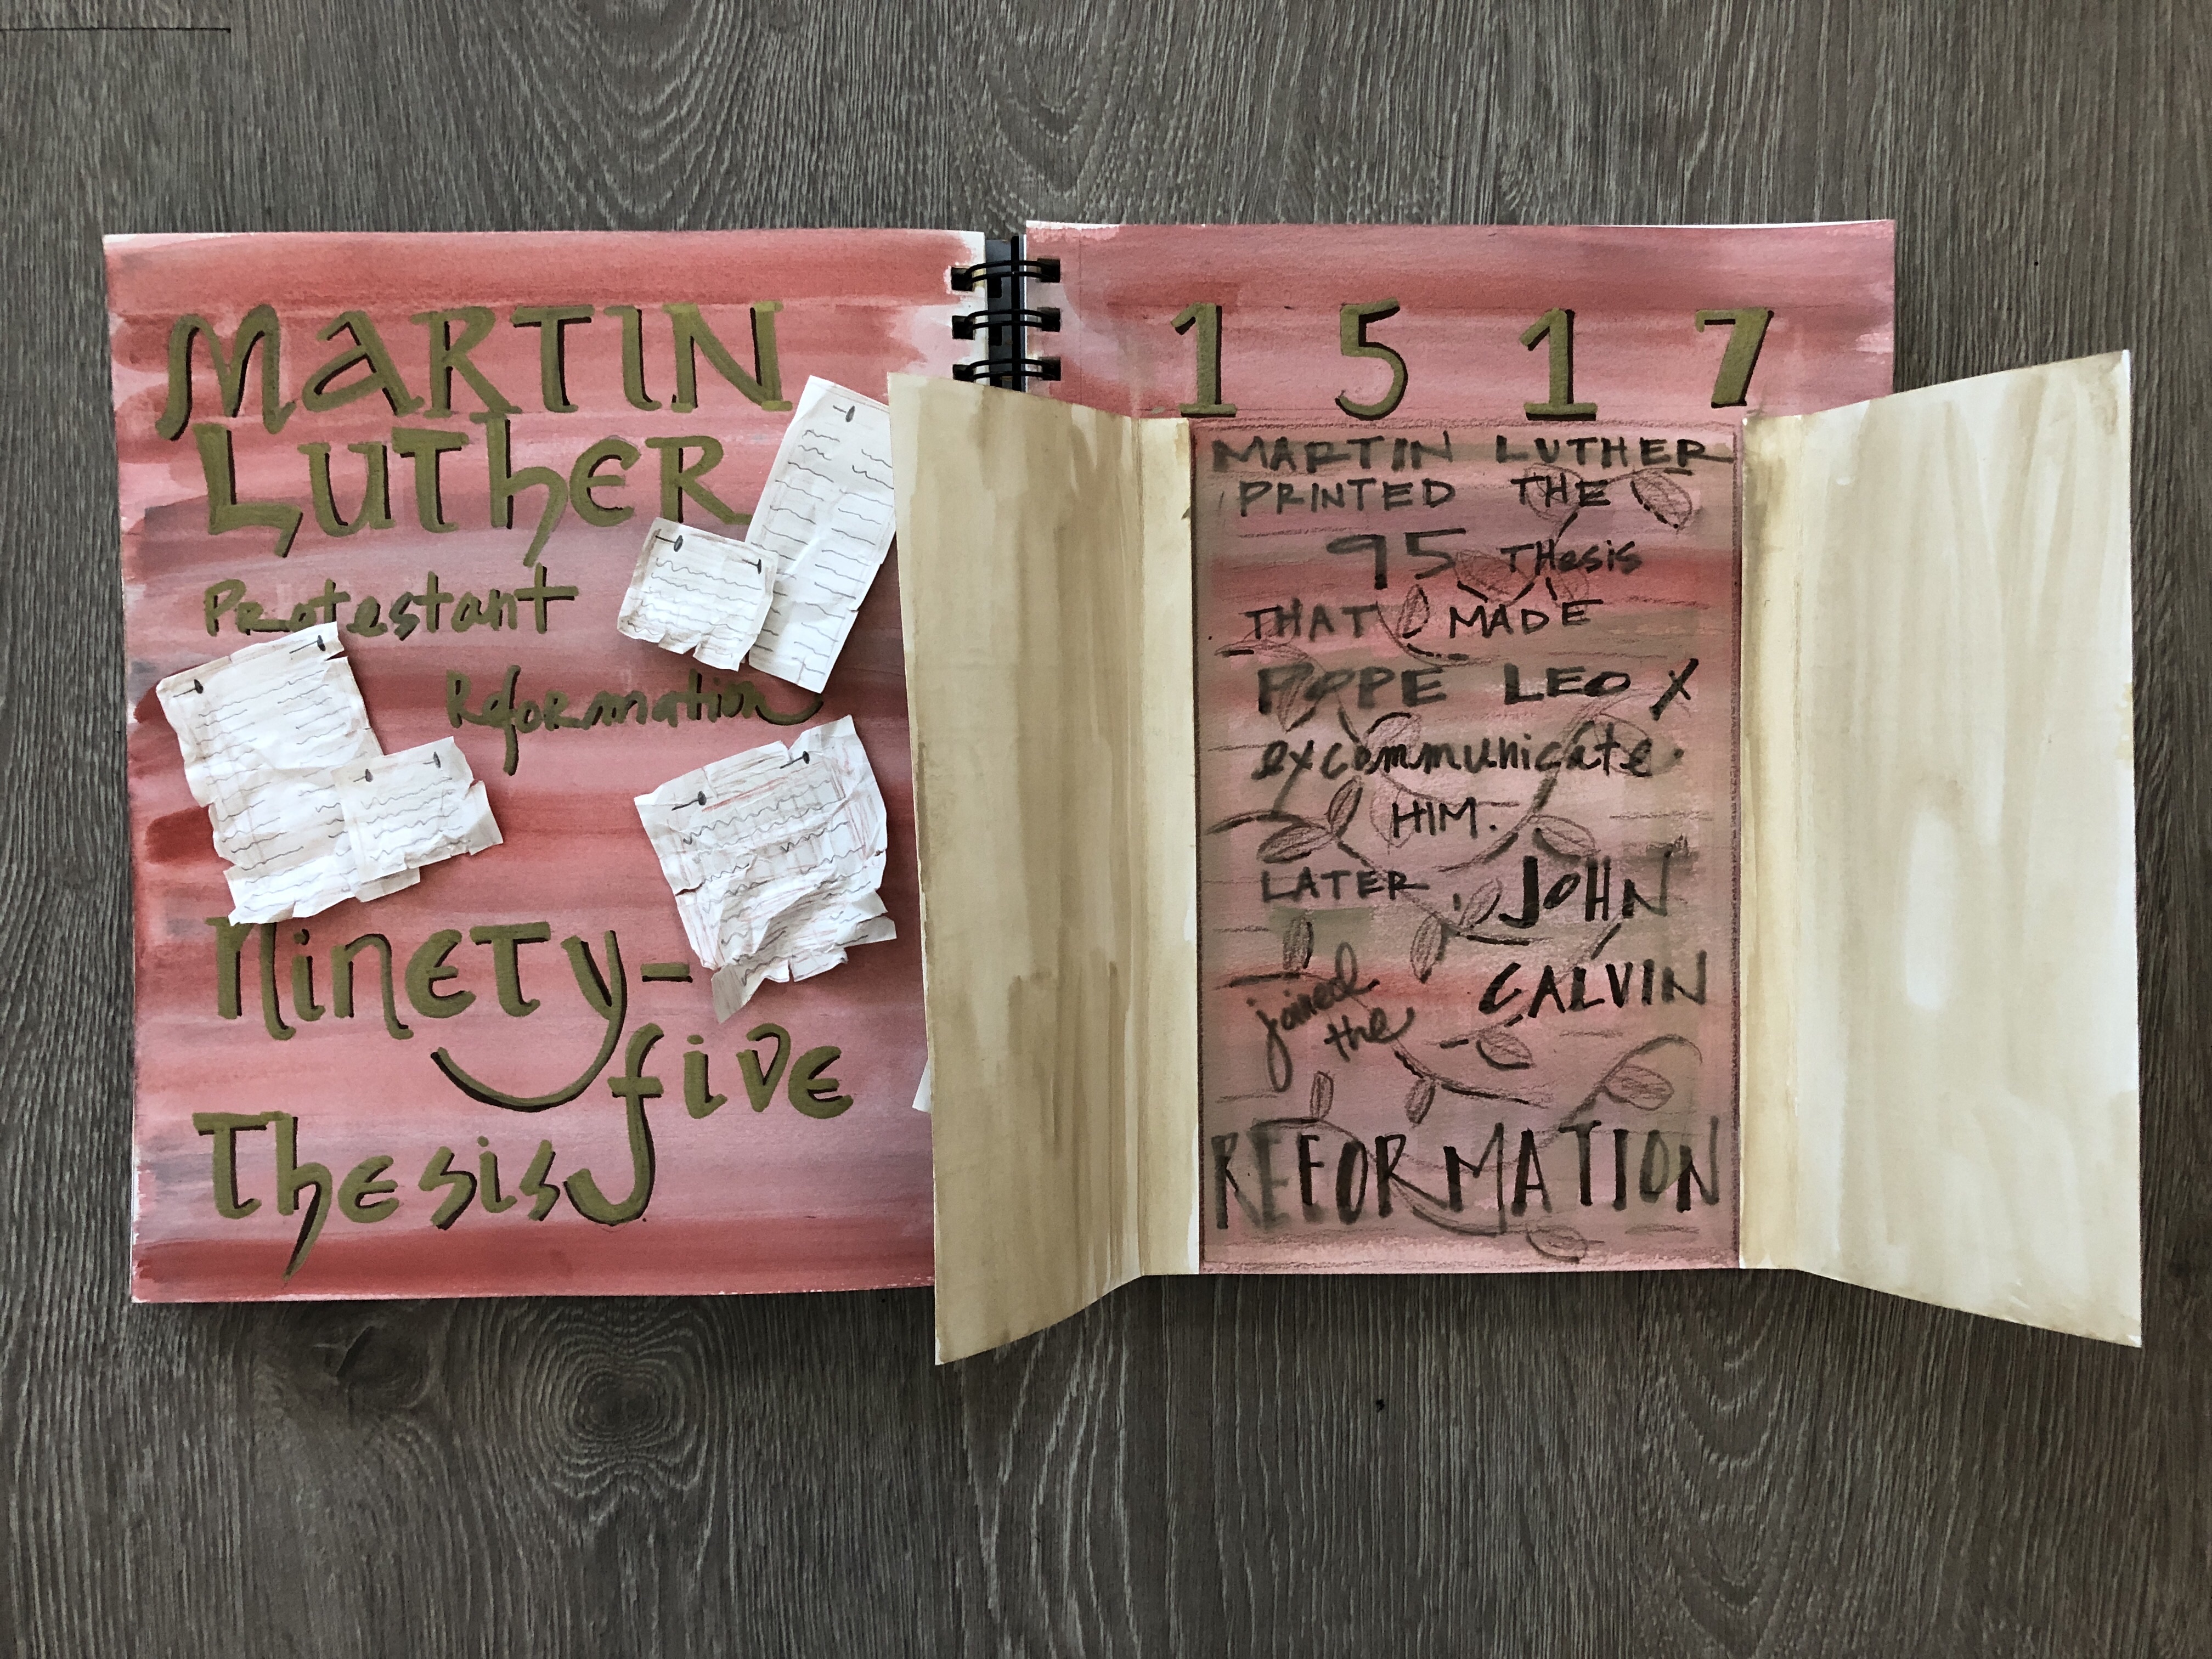 MARTIN
LUTHER
Protestant
Reformation
Ninety-
five
Thesis
1517
MARTIN LUTHER
PRINTED THE
95 THesis
THAT MADE
POPE LEO X
excommunicate
HIM.
LATER, JOHN
CALVIN
joined
the
REFORMATION